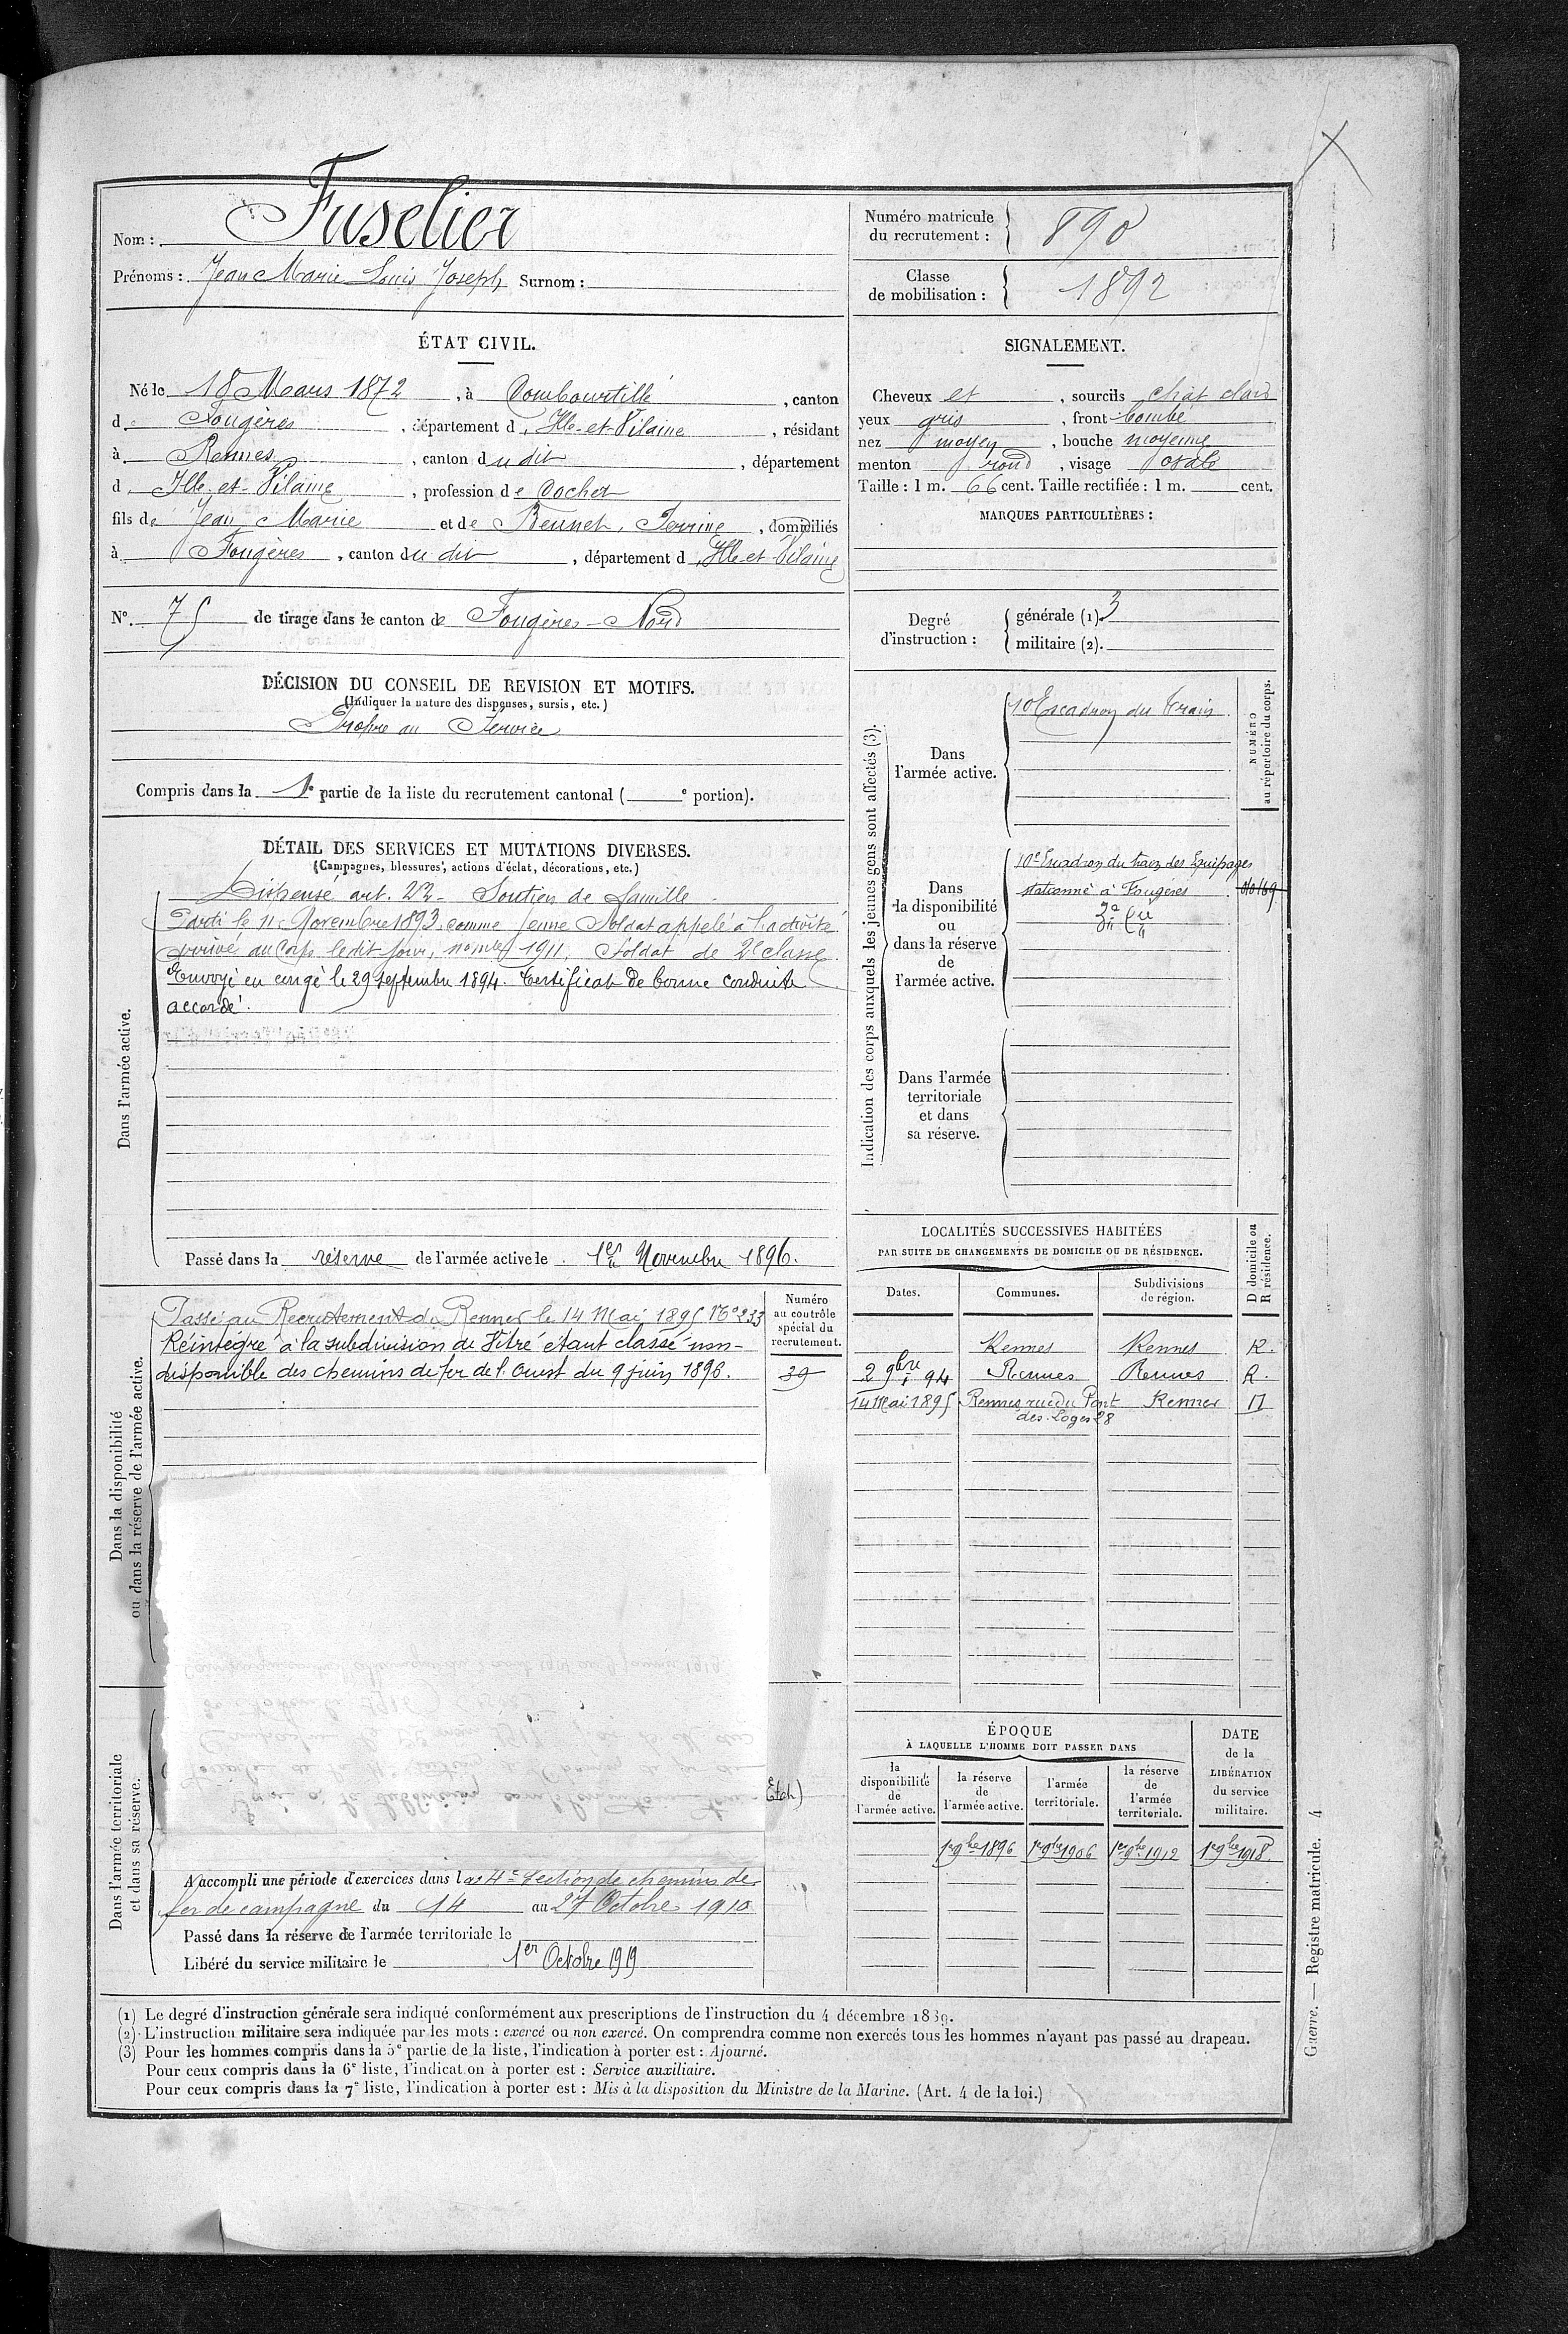 Nom : Fuselier
Prénoms : Jean Marie Louis Joseph Surnom :
Numéro matricule du recrutement : 890
Classe de mobilisation : 1892
ÉTAT CIVIL.
Né le 18 Mars 1872, à Combourtillé, canton
d Fougères, département d Ille-et-Vilaine, résidant
à Rennes, canton du dit, département
d Ille-et-Vilaine, profession de Cocher
fils de Jean Marie et de Perrine, domiciliés
à Fougères, canton du dit, département d Ille-et-Vilaine
N° 75 de tirage dans le canton de Fougères-Nord
SIGNALEMENT.
Cheveux et, sourcils chât clairs
yeux gris, front bombé
nez moyen, bouche moyenne
menton rond, visage ovale
Taille : 1 m. 66 cent. Taille rectifiée : 1 m. cent.
MARQUES PARTICULIÈRES :
Degré d'instruction :
générale (1). 3
militaire (2).
DÉCISION DU CONSEIL DE REVISION ET MOTIFS.
(Indiquer la nature des dispenses, sursis, etc.)
Propre au Service
Compris dans la 1e partie de la liste du recrutement cantonal ( e portion).
DÉTAIL DES SERVICES ET MUTATIONS DIVERSES.
(Campagnes, blessures, actions d'éclat, décorations, etc.)
Dans l'armée active.
Dispensé art. 22 - Soutien de famille
Parti le 11 Novembre 1893, comme jeune Soldat appelé à l'activité
arrivé au Corps le dit jour, nº mle 1911, Soldat de 2e classe
Envoyé en congé le 29 septembre 1894. Certificat de bonne conduite
accordé.
Passé dans la réserve de l'armée active le 1er Novembre 1896.
Indication des corps auxquels les jeunes gens sont affectés (3).
NUMÉRO au répertoire du corps.
Dans l'armée active.
10 Escadron du Train
Dans la disponibilité ou dans la réserve de l'armée active.
10e Escadron du train des Equipages
stationné à Fougères
Dans l'armée territoriale et dans sa réserve.
Dans la disponibilité ou dans la réserve de l'armée active.
Numéro au contrôle spécial du recrutement.
Passé au Recrutement de Rennes le 14 Mai 1895 No 233
Réintégré à la subdivision de Vitré étant classé non-
disponible des chemins de fer de l'Ouest du 9 juin 1896.
39
LOCALITÉS SUCCESSIVES HABITÉES
PAR SUITE DE CHANGEMENTS DE DOMICILE OU DE RÉSIDENCE.
D domicile ou R résidence.
Dates. Communes. Subdivisions de région.
Rennes Rennes R.
2 9bre 94 Rennes Rennes R.
14 Mai 1895 Rennes rue du Pont des Loges 28 Rennes D
Dans l'armée territoriale et dans sa réserve.
A accompli une période d'exercices dans la 4e Section de chemins de
fer de campagne du 14 au 27 Octobre 1910
Passé dans la réserve de l'armée territoriale le
Libéré du service militaire le 1er Octobre 1919
ÉPOQUE
À LAQUELLE L'HOMME DOIT PASSER DANS
la disponibilité de l'armée active.
la réserve de l'armée active.
l'armée territoriale.
la réserve de l'armée territoriale.
DATE de la LIBÉRATION du service militaire.
1er 9bre 1896 1er 9bre 1906 1er 9bre 1912 1er 9bre 1918
(1) Le degré d'instruction générale sera indiqué conformément aux prescriptions de l'instruction du 4 décembre 1889.
(2) L'instruction militaire sera indiquée par les mots : exercé ou non exercé. On comprendra comme non exercés tous les hommes n'ayant pas passé au drapeau.
(3) Pour les hommes compris dans la 5e partie de la liste, l'indication à porter est : Ajourné.
Pour ceux compris dans la 6e liste, l'indication à porter est : Service auxiliaire.
Pour ceux compris dans la 7e liste, l'indication à porter est : Mis à la disposition du Ministre de la Marine. (Art. 4 de la loi.)
Guerre. — Registre matricule. 4